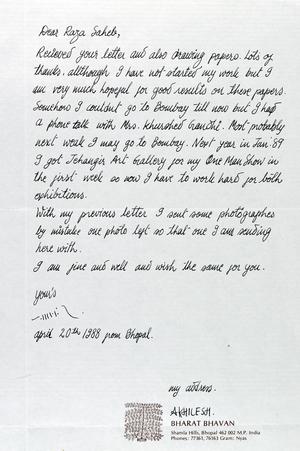 Dear Raza Saheb,
Recieved your letter and also drawing papers. Lots of
thanks, allthough I have not started my work but I
am very much hopeful for good results on these papers.
Somehow I couldnt go to Bombay till now but I had
a phone talk with Mrs. Khurshed Gandhi. Most probably
next week I may go to Bombay. Next year in Jan. '89
I got Jehangir Art Gallery for my One Man Show in
the first week so now I have to work hard for both
exhibitions.
With my previous letter I sent some photographes
by mistake one photo left so that one I am sending
here with.
I am fine and well and wish the same for you.
your's
april 20th 1988 from Bhopal.
my address.
AKHILESH.
BHARAT BHAVAN
Shamla Hills, Bhopal 462 002 M.P. India
Phones: 77361, 76163 Gram: Nyas